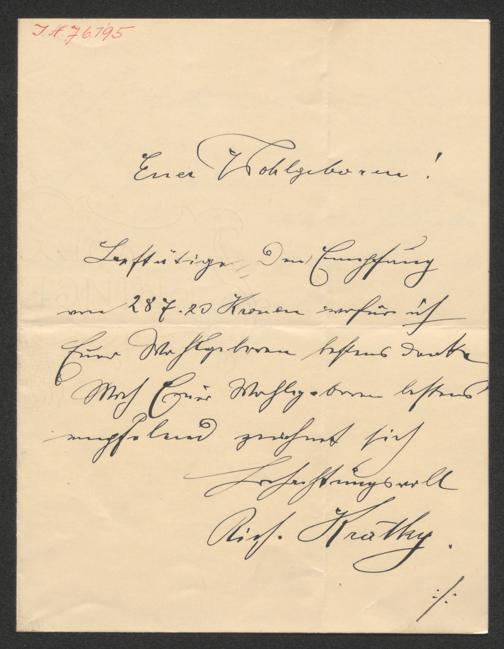 J.N. 76.195
Euer Wohlgeboren!
Bestätige den Empfang
von 287.20 Kronen wofür ich
Euer Wohlgeboren bestens danke
Mich Euer Wohlgeboren bestens
empfelend zeichnet sich
Hochachtungsvoll
Rich. Krátky.
:/: